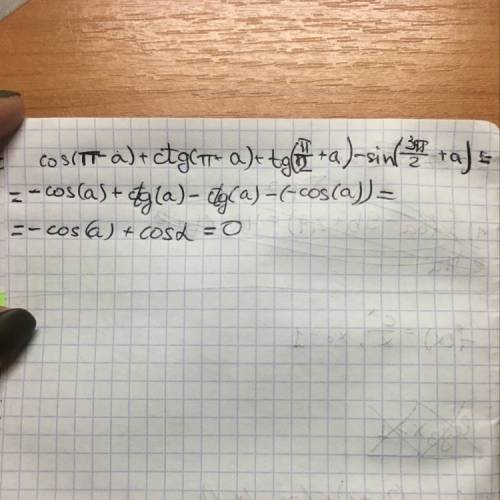 cos(π-a)+ctg(π-a)+tg(π/2+a)-sin(3π/2+a)=
=-cos(a)+ctg(a)-ctg(a)-(-cos(a))=
=-cos(a)+cosα=0